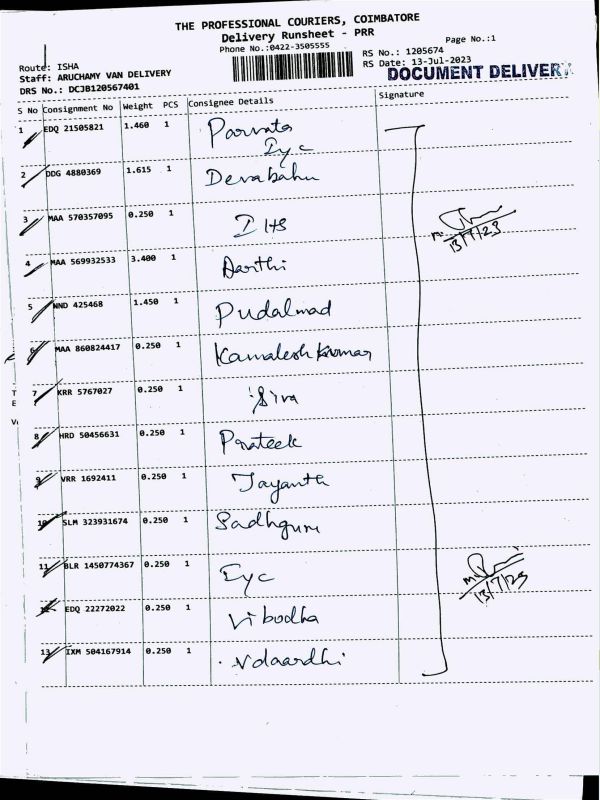 THE PROFESSIONAL COURIERS, COIMBATORE
Delivery Runsheet - PRR
Phone No.:0422-3505555
Page No.:1
Route: ISHA
RS No.: 1205674
Staff: ARUCHAMY VAN DELIVERY
RS Date: 13-Jul-2023
DRS No.: DCJB120567401
DOCUMENT DELIVERY
S No Consignment No Weight PCS Consignee Details Signature
1 EDQ 21505821 1.460 1 Parvata
Iyc
2 DDG 4880369 1.615 1 Devabahu
3 MAA 570357095 0.250 1 IHS
13/7/23
4 MAA 569932533 3.400 1 Aarthi
5 NND 425468 1.450 1 Pudalmad
6 MAA 860824417 0.250 1 Kamalesh Kumar
7 KRR 5767027 0.250 1 Siva
8 HRD 50456631 0.250 1 Prateek
9 VRR 1692411 0.250 1 Jayanth
10 SLM 323931674 0.250 1 Sadhguru
11 BLR 1450774367 0.250 1 Iyc
13/7/23
12 EDQ 22272022 0.250 1 Vibodha
13 IXM 504167914 0.250 1